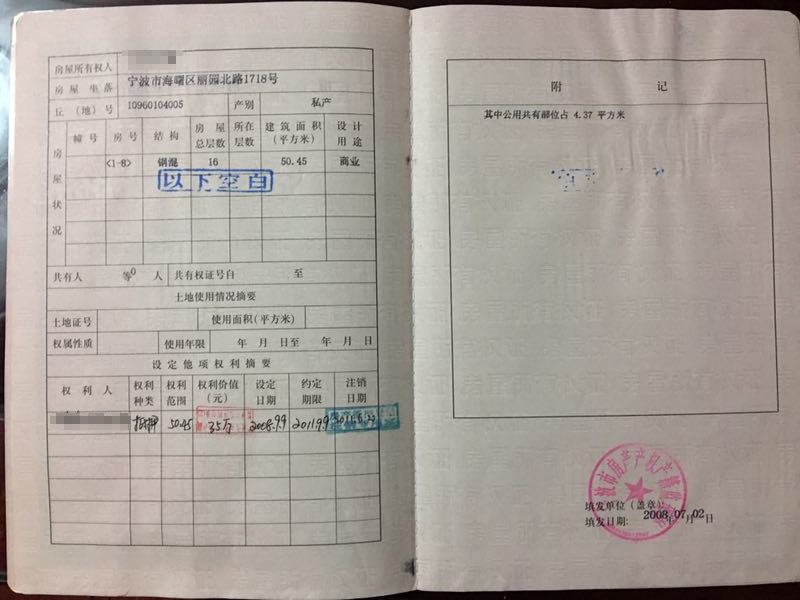 房屋所有权人
房屋坐落 宁波市海曙区丽园北路1718号
丘(地)号 10960104005 产别 私产
房屋状况
幢号 房号 结构 房屋总层数 所在层数 建筑面积(平方米) 设计用途
<1-8> 钢混 16 50.45 商业
以下空白
共有人 等0人 共有权证号自 至
土地使用情况摘要
土地证号 使用面积(平方米)
权属性质 使用年限 年 月 日至 年 月 日
设定他项权利摘要
权利人 权利种类 权利范围 权利价值(元) 设定日期 约定期限 注销日期
抵押 50.45 35万 2008.9.9 2011.9.9
附 记
其中公用共有部位占 4.37 平方米
填发单位(盖章):
填发日期: 2008年07月02日